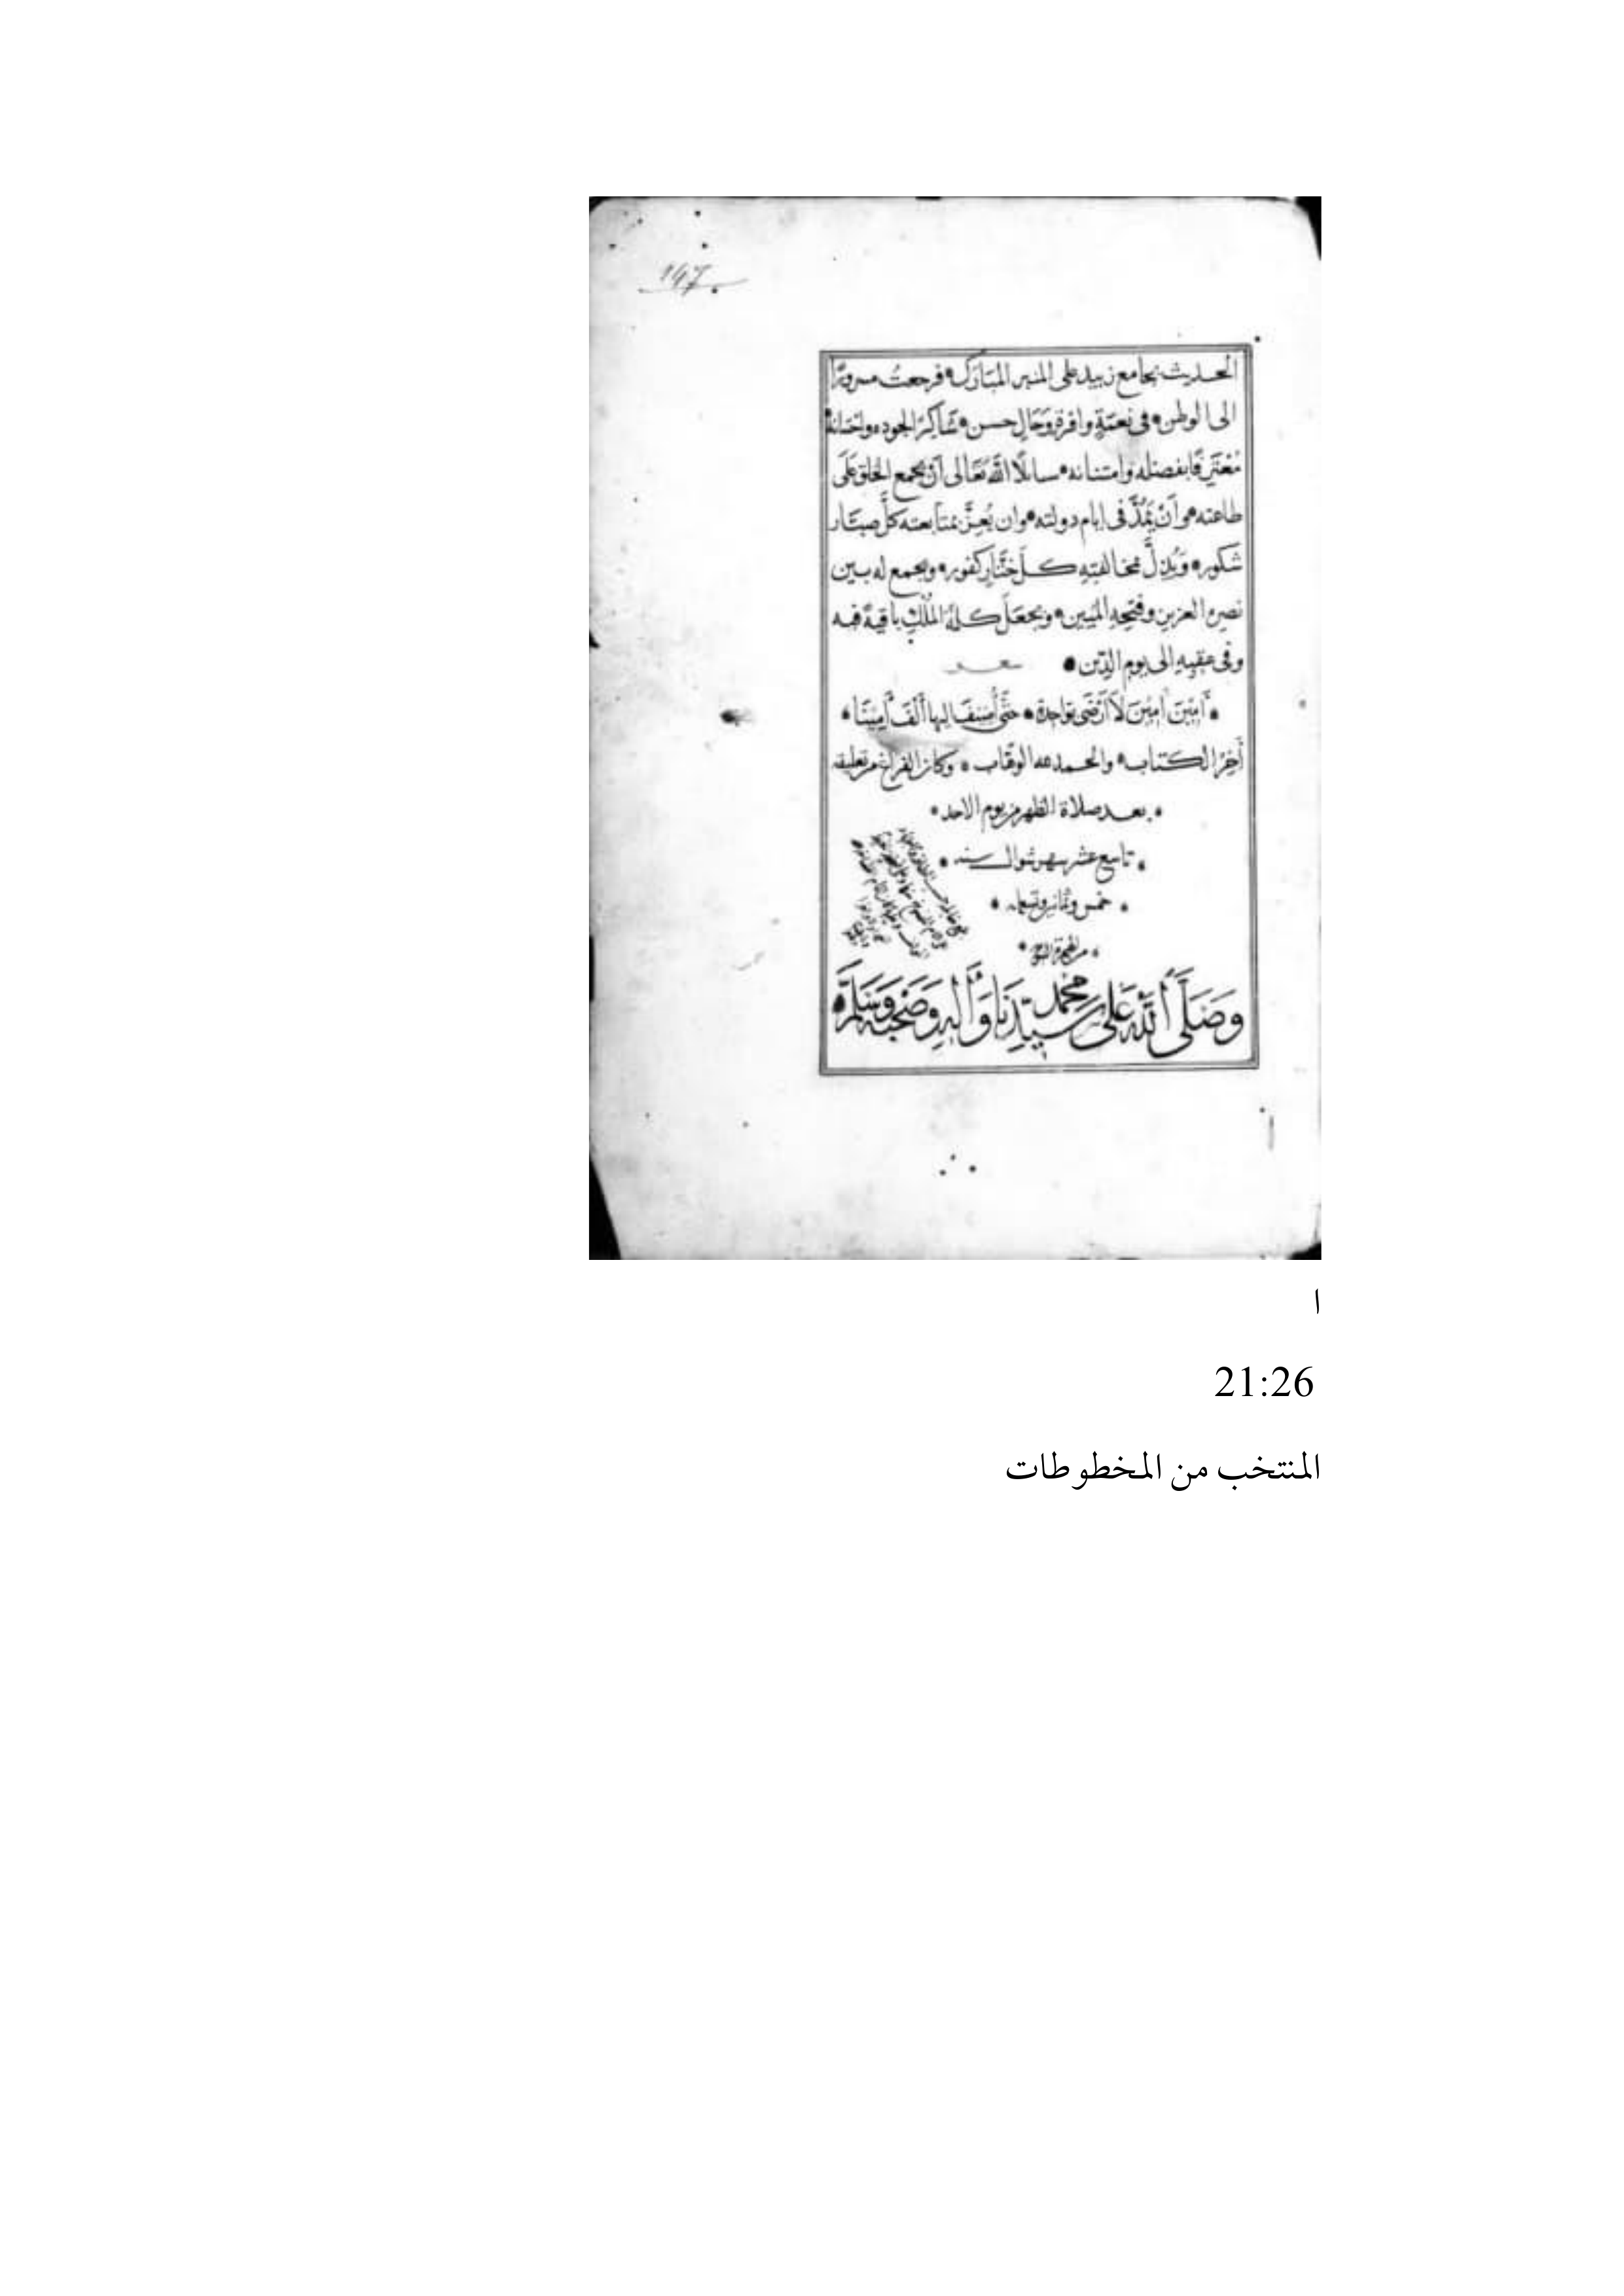 147
الحديث بجامع زبيد على المنبر المبارك فرجعتُ مسرورًا
الى الوطن في نعمَةٍ وافرة وَحَالٍ حسن شَاكِرًا لجوده واحْسَانه
مُعْتَرِفًا بفضله وامتنانه سائلًا اللّه تَعَالى أنْ يجمع الخلق عَلَى
طاعته وَأنْ يَمُدَّ فى ايام دولته وان يُعِزَّ بمتابعته كلَّ صبَّار
شَكور وَيُذِلَّ بمخالفتِهِ كلَّ خَتَّارٍ كفور ويجمع له بين
نصرِهِ العزيز وفتحِهِ المُبين ويجعَلَ كلمةَ المُلْكِ باقيةً فيه
وفي عقبِهِ الى يومِ الدِّين
آمِيْنَ آمِيْنَ لَا أَرْضَى بوَاحِدةٍ حَتَّى أُضِيْفَ اليها أَلْفَ آمِيْنَا
آخِرُ الكتاب والحمد لله الوهّاب وكان الفراغ من تعليقه
بعد صلاة الظهر من يوم الاحد
تاسع عشر شهر شوال سنه
خمس وثمانين وتسعمايه
من الهجرة النبوية
وَصَلَّى اللّٰهُ عَلَى سَيِّدِنَا مُحَمَّد وَآلِهِ وَصَحْبِهِ وَسَلَّمَ
ا
21:26
المنتخب من المخطوطات